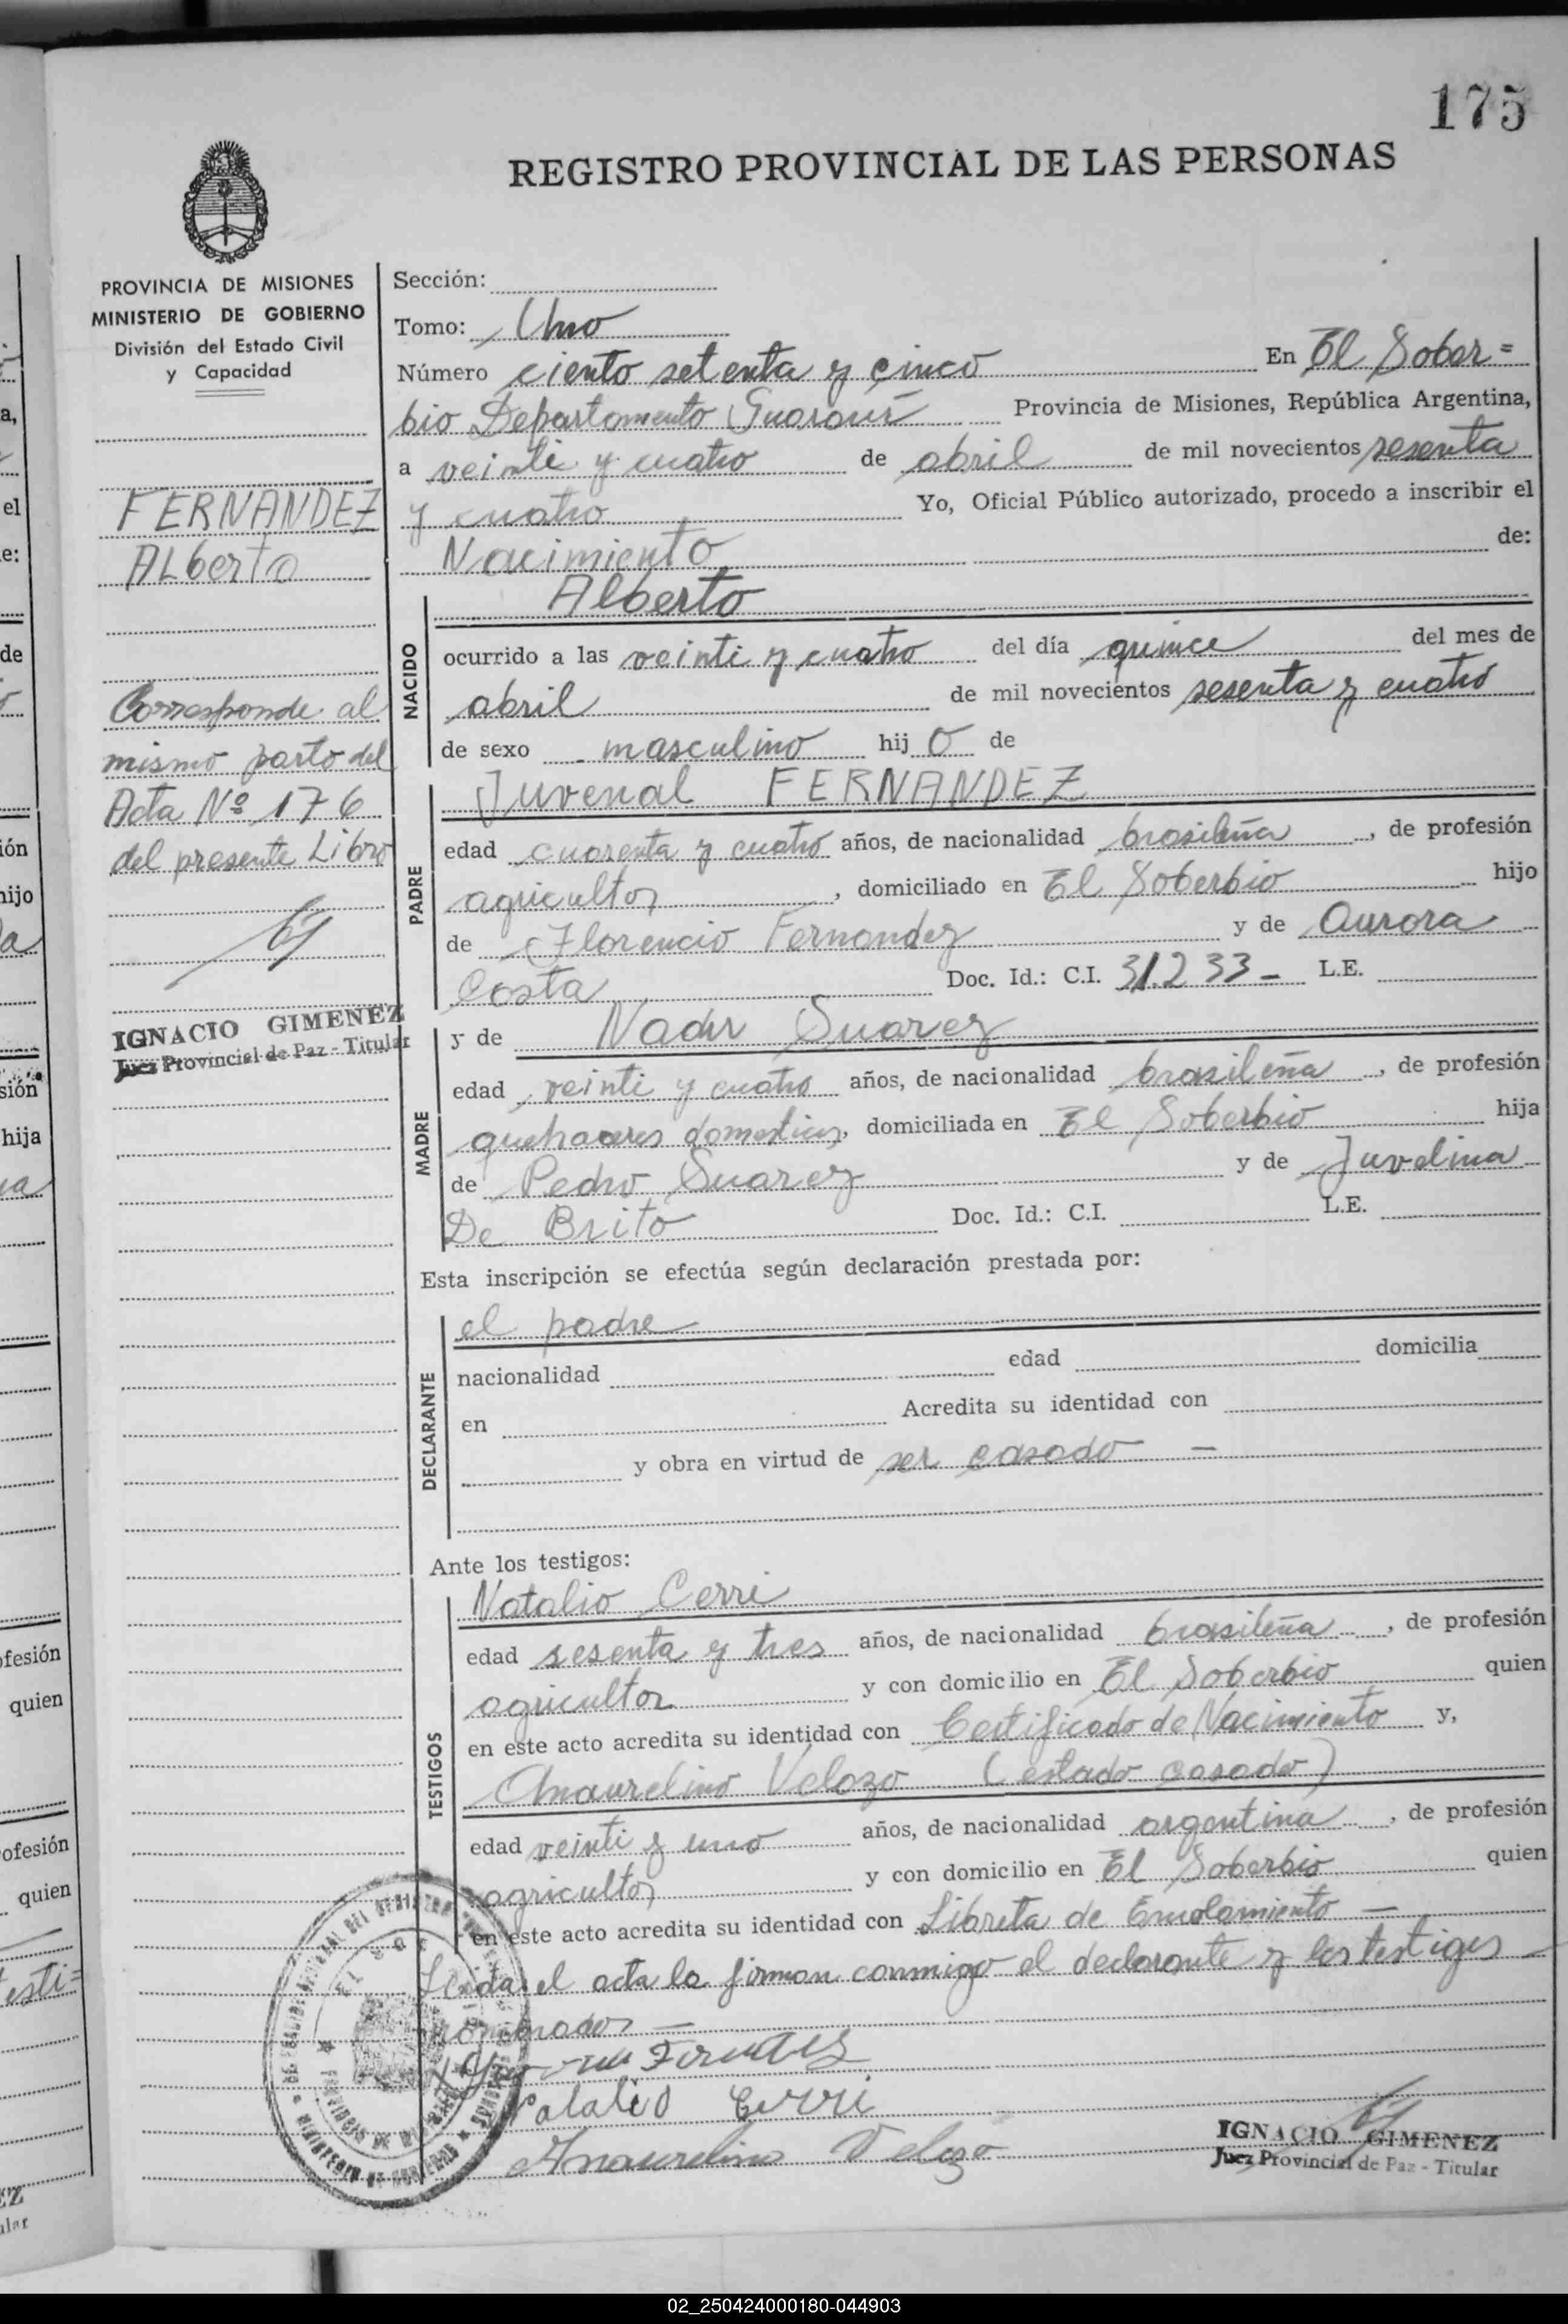 175
REGISTRO PROVINCIAL DE LAS PERSONAS
PROVINCIA DE MISIONES
MINISTERIO DE GOBIERNO
División del Estado Civil
y Capacidad
FERNANDEZ
ALberto
Corresponde al
mismo parto del
Acta Nº 176
del presente Libro
IGNACIO GIMENEZ
Juez Provincial de Paz - Titular
Sección:
Tomo: Uno
Número ciento setenta y cinco En El Sober=
bio Departamento Guaraní Provincia de Misiones, República Argentina,
a veinti y cuatro de abril de mil novecientos sesenta
y cuatro Yo, Oficial Público autorizado, procedo a inscribir el
Nacimiento de:
NACIDO
Alberto
ocurrido a las veinti y cuatro del día quince del mes de
abril de mil novecientos sesenta y cuatro
de sexo masculino hij o de
PADRE
Juvenal FERNANDEZ
edad cuarenta y cuatro años, de nacionalidad brasileña, de profesión
agricultor, domiciliado en El Soberbio hijo
de Florencio Fernandez y de Aurora
Costa Doc. Id.: C.I. 31.233- L.E.
MADRE
y de Nadir Suarez
edad veinti y cuatro años, de nacionalidad brasileña, de profesión
quehaceres domesticos, domiciliada en El Soberbio hija
de Pedro Suarez y de Juvelina
De Brito Doc. Id.: C.I. L.E.
Esta inscripción se efectúa según declaración prestada por:
DECLARANTE
el padre
nacionalidad edad domicilia
en Acredita su identidad con
y obra en virtud de ser casado -
Ante los testigos:
TESTIGOS
Natalio Cerri
edad sesenta y tres años, de nacionalidad brasileña, de profesión
agricultor y con domicilio en El Soberbio quien
en este acto acredita su identidad con Certificado de Nacimiento y,
Anaurelino Velozo (estado casado)
edad veinti y uno años, de nacionalidad argentina, de profesión
agricultor y con domicilio en El Soberbio quien
en este acto acredita su identidad con Libreta de Enrolamiento -
Leida el acta la firman conmigo el declarante y los testigos
nombrados -
Natalio Cerri
Anaurelino Velozo
IGNACIO GIMENEZ
Juez Provincial de Paz - Titular
02_250424000180-044903